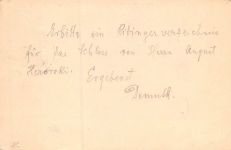 Erbitte ein Ritinger verzeichnis
für das Schloss von Herrn August
Ergebenst
Demuth.